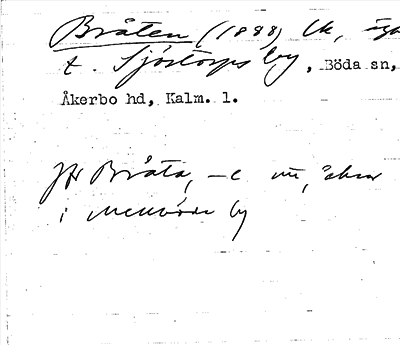 Bråten (1888) lk, äga
t. Sjöstorps by, Böda sn,
Åkerbo hd, Kalm. l.
Jfr Bråta, –e m, åkrar
i Mellböda by